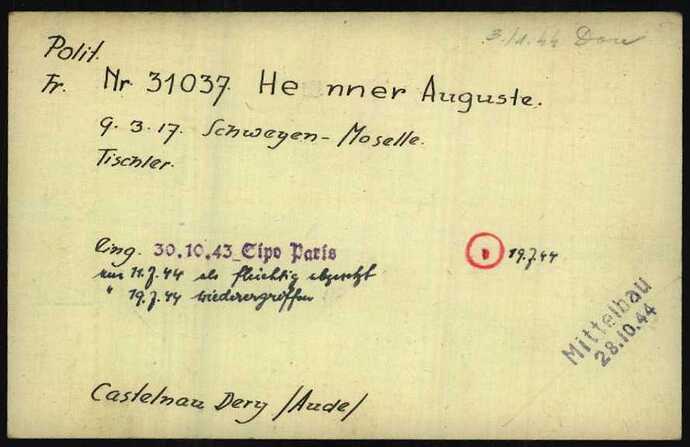 3./11.44 Dora
Polit.
Fr. Nr. 31037. He nner Auguste.
9. 3. 17. Schweyen - Moselle.
Tischler.
Eing. 30.10.43 Sipo Paris
19.7.44
am 11.7.44 als flüchtig abgesetzt
" 19.7.44 wiederergriffen
Mittelbau
28.10.44
Castelnau Dery /Aude/